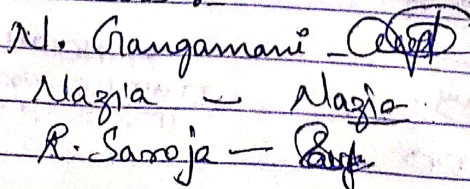 N. Gangamani -
Nazia - Nazia
R. Saroja -